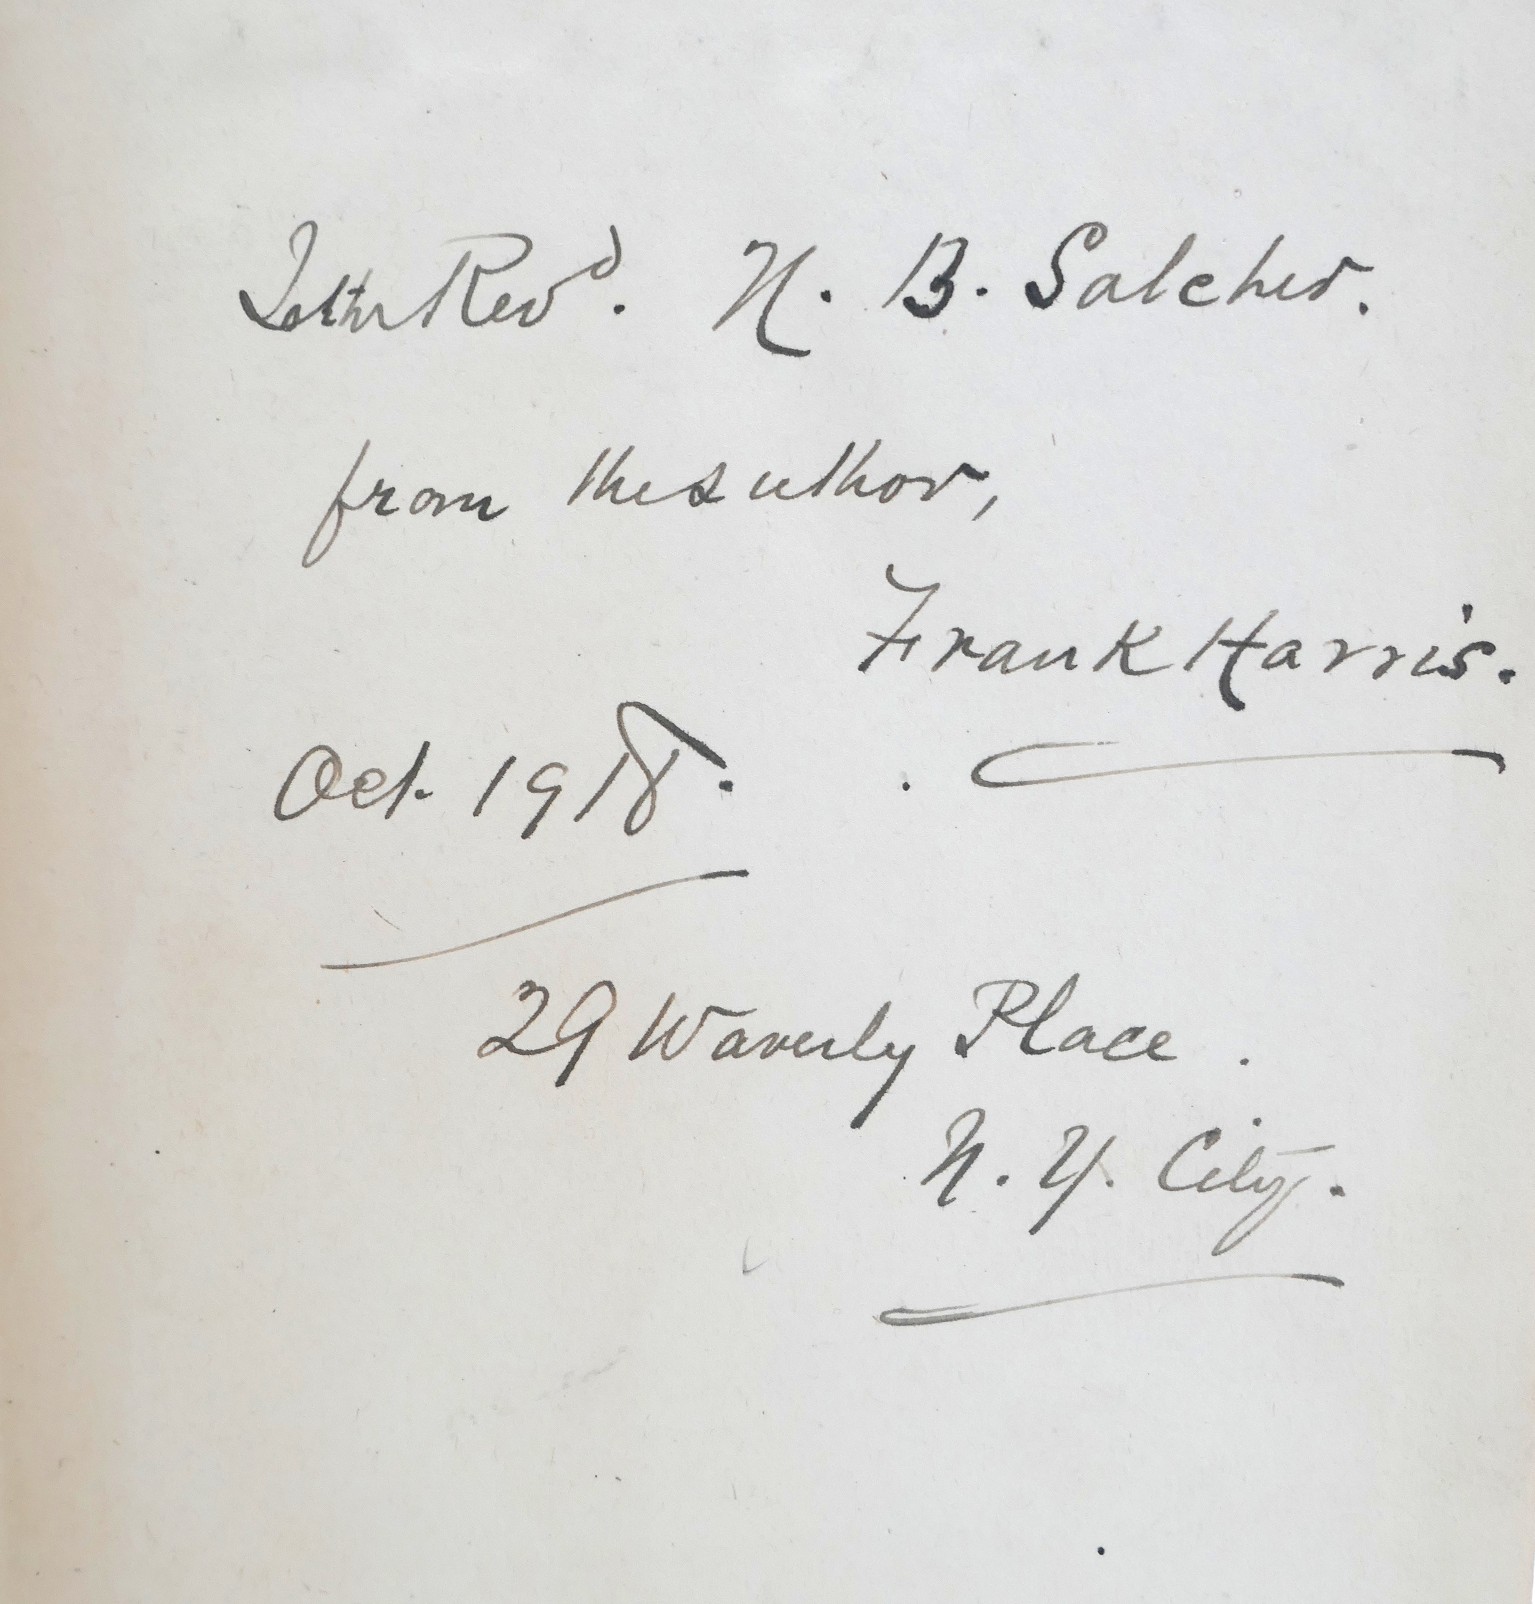 To the Revd. N. B. Salcher.
from the author,
Frank Harris.
Oct. 1918.
29 Waverly Place.
N. Y. City.